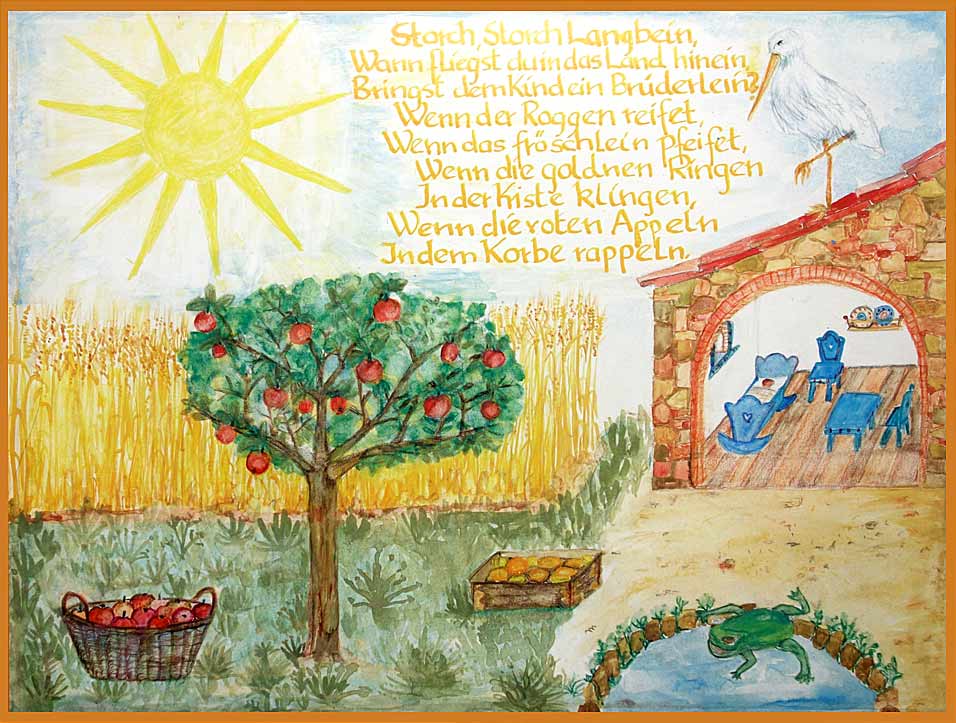 Storch, Storch Langbein,
Wann fliegst du in das Land hinein,
Bringst dem Kind ein Brüderlein?
Wenn der Roggen reifet,
Wenn das fröschlein pfeifet,
Wenn die goldnen Ringen
In der Kiste klingen,
Wenn die roten Appeln
In dem Korbe rappeln.